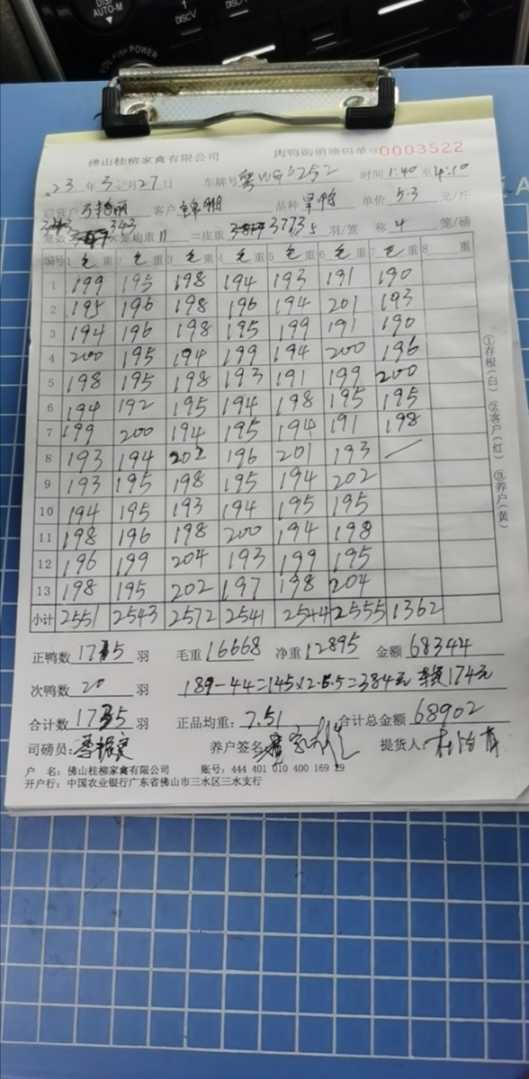 DISP
AUTO-M
1
DISCV
DISCV
PUSH POWER
佛山桂柳家禽有限公司 肉鸭购销磅码单 0003522
23 年 3 月 27 日 车牌号 252 时间 1:40 至 4:10
客户 品种 单价 5.3 元/斤
343 343
均重 11 二皮重 3773 5 羽/笼 称 4 笼/磅
编号 1 毛 重 2 毛 重 3 毛 重 4 毛 重 5 毛 重 6 毛 重 7 毛 重 8 重
1 199 195 198 194 193 191 190
2 195 196 198 196 194 201 193
3 194 196 198 195 199 191 190
4 200 195 194 199 194 200 196
5 198 195 198 193 191 199 200
6 194 192 195 194 198 195 195
7 199 200 194 195 194 191 198
8 193 194 202 196 201 193 /
9 193 195 198 195 194 202
10 194 195 193 194 195 195
11 198 196 198 200 194 198
12 196 199 204 193 199 195
13 198 195 202 197 198 204
小计 2551 2543 2572 2541 2544 2555 1362
①存根(白) ②客户(红) ③养户(黄)
正鸭数 1715 羽 毛重 16668 净重 12895 金额 68344
次鸭数 20 羽 189-44=145×2.65=384元 174元
合计数 1735 羽 正品均重: 7.51 合计总金额 68902
司磅员: 养户签名 提货人:
户 名: 佛山桂柳家禽有限公司 账号: 444 401 010 400 169 29
开户行: 中国农业银行广东省佛山市三水区三水支行